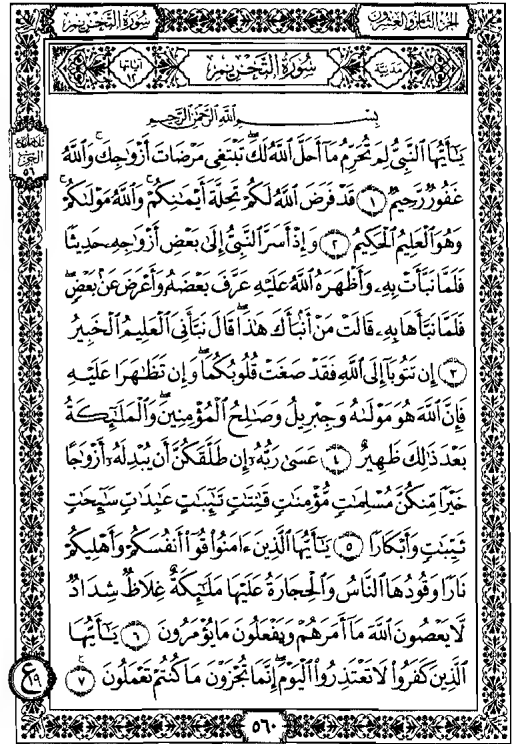 سُورَةُ التَّحْرِيمِ
الجزء الثامن والعشرون
سُورَةُ التَّحْرِيمِ
مَدَنِيَّة
آياتها ١٢
بِسْمِ اللَّهِ الرَّحْمَٰنِ الرَّحِيمِ
يَٰٓأَيُّهَا ٱلنَّبِىُّ لِمَ تُحَرِّمُ مَآ أَحَلَّ ٱللَّهُ لَكَ ۖ تَبْتَغِى مَرْضَاتَ أَزْوَٰجِكَ ۚ وَٱللَّهُ
غَفُورٌ رَّحِيمٌ ١ قَدْ فَرَضَ ٱللَّهُ لَكُمْ تَحِلَّةَ أَيْمَٰنِكُمْ ۚ وَٱللَّهُ مَوْلَىٰكُمْ ۖ
وَهُوَ ٱلْعَلِيمُ ٱلْحَكِيمُ ٢ وَإِذْ أَسَرَّ ٱلنَّبِىُّ إِلَىٰ بَعْضِ أَزْوَٰجِهِۦ حَدِيثًا
فَلَمَّا نَبَّأَتْ بِهِۦ وَأَظْهَرَهُ ٱللَّهُ عَلَيْهِ عَرَّفَ بَعْضَهُۥ وَأَعْرَضَ عَنۢ بَعْضٍ ۖ
فَلَمَّا نَبَّأَهَا بِهِۦ قَالَتْ مَنْ أَنۢبَأَكَ هَٰذَا ۖ قَالَ نَبَّأَنِىَ ٱلْعَلِيمُ ٱلْخَبِيرُ
٣ إِن تَتُوبَآ إِلَى ٱللَّهِ فَقَدْ صَغَتْ قُلُوبُكُمَا ۖ وَإِن تَظَٰهَرَا عَلَيْهِ
فَإِنَّ ٱللَّهَ هُوَ مَوْلَىٰهُ وَجِبْرِيلُ وَصَٰلِحُ ٱلْمُؤْمِنِينَ ۖ وَٱلْمَلَٰٓئِكَةُ
بَعْدَ ذَٰلِكَ ظَهِيرٌ ٤ عَسَىٰ رَبُّهُۥٓ إِن طَلَّقَكُنَّ أَن يُبْدِلَهُۥٓ أَزْوَٰجًا
خَيْرًا مِّنكُنَّ مُسْلِمَٰتٍ مُّؤْمِنَٰتٍ قَٰنِتَٰتٍ تَٰٓئِبَٰتٍ عَٰبِدَٰتٍ سَٰٓئِحَٰتٍ
ثَيِّبَٰتٍ وَأَبْكَارًا ٥ يَٰٓأَيُّهَا ٱلَّذِينَ ءَامَنُوا۟ قُوٓا۟ أَنفُسَكُمْ وَأَهْلِيكُمْ
نَارًا وَقُودُهَا ٱلنَّاسُ وَٱلْحِجَارَةُ عَلَيْهَا مَلَٰٓئِكَةٌ غِلَاظٌ شِدَادٌ
لَّا يَعْصُونَ ٱللَّهَ مَآ أَمَرَهُمْ وَيَفْعَلُونَ مَا يُؤْمَرُونَ ٦ يَٰٓأَيُّهَا
ٱلَّذِينَ كَفَرُوا۟ لَا تَعْتَذِرُوا۟ ٱلْيَوْمَ ۖ إِنَّمَا تُجْزَوْنَ مَا كُنتُمْ تَعْمَلُونَ ٧
ع ١٩
٥٦٠